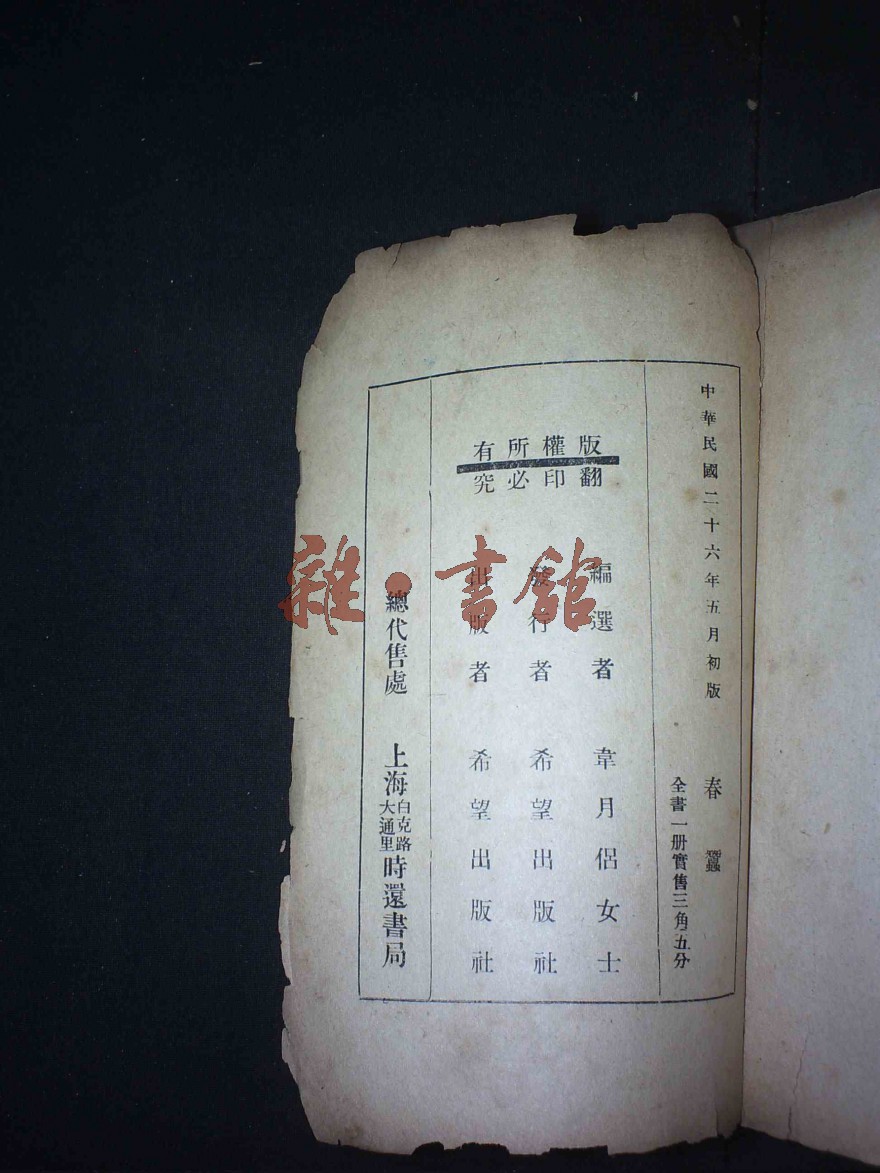 中華民國二十六年五月初版
春蠶
全書一册實售三角五分
版權所有
翻印必究
編選者 韋月侶女士
發行者 希望出版社
出版者 希望出版社
總代售處 上海白克路大通里時還書局
雜·書館